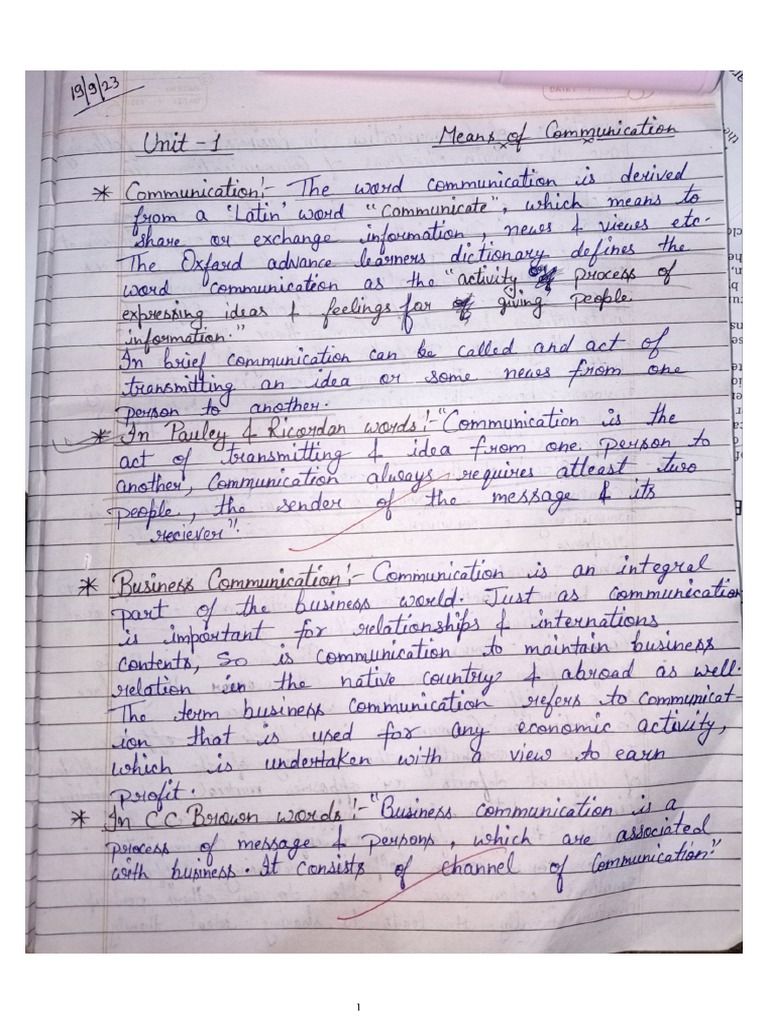 19/9/23
Unit - 1 Means of Communication
* Communication :- The word communication is derived
from a 'Latin' word "communicate", which means to
share or exchange information, news & views etc.
The Oxford advance learners dictionary defines the
word communication as the "activity or process of
expressing ideas & feelings for giving people
information."
In brief communication can be called and act of
transmitting an idea or some news from one
person to another.
* In Pauley & Ricordan words :- "Communication is the
act of transmitting & idea from one person to
another, Communication always requires atleast two
people, the sender of the message & its
reciever".
* Business Communication :- Communication is an integral
part of the business world. Just as communication
is important for relationships & internations
contents, so is communication to maintain business
relation in the native country & abroad as well.
The term business communication refers to communicat-
ion that is used for any economic activity,
which is undertaken with a view to earn
profit.
* In C.C. Brown words :- "Business communication is a
process of message & persons, which are associated
with business. It consists of channel of Communication."
1